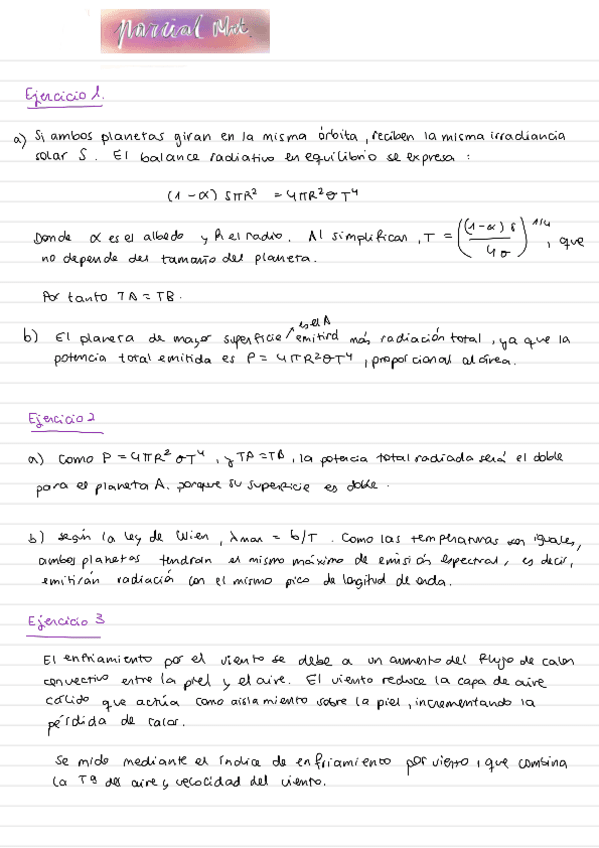 parcial Mat.
Ejercicio 1.
a) Si ambos planetas giran en la misma órbita, reciben la misma irradiancia
solar S. El balance radiativo en equilibrio se expresa :
(1 - α) SπR² = 4πR²σT⁴
Donde α es el albedo y R el radio. Al simplificar, T = ((1-α) S / 4σ)^1/4, que
no depende del tamaño del planeta.
Por tanto TA = TB.
es el A
b) El planeta de mayor superficie emitirá más radiación total, ya que la
potencia total emitida es P = 4πR²σT⁴, proporcional al área.
Ejercicio 2
a) Como P = 4πR²σT⁴, y TA = TB, la potencia total radiada será el doble
para el planeta A. porque su superficie es doble.
b) según la ley de Wien, λmax = b/T. Como las temperaturas son iguales,
ambos planetas tendrán el mismo máximo de emisión espectral, es decir,
emitirán radiación con el mismo pico de longitud de onda.
Ejercicio 3
El enfriamiento por el viento se debe a un aumento del flujo de calor
convectivo entre la piel y el aire. El viento reduce la capa de aire
cálido que actúa como aislamiento sobre la piel, incrementando la
pérdida de calor.
Se mide mediante el índice de enfriamiento por viento, que combina
la Tª del aire y velocidad del viento.